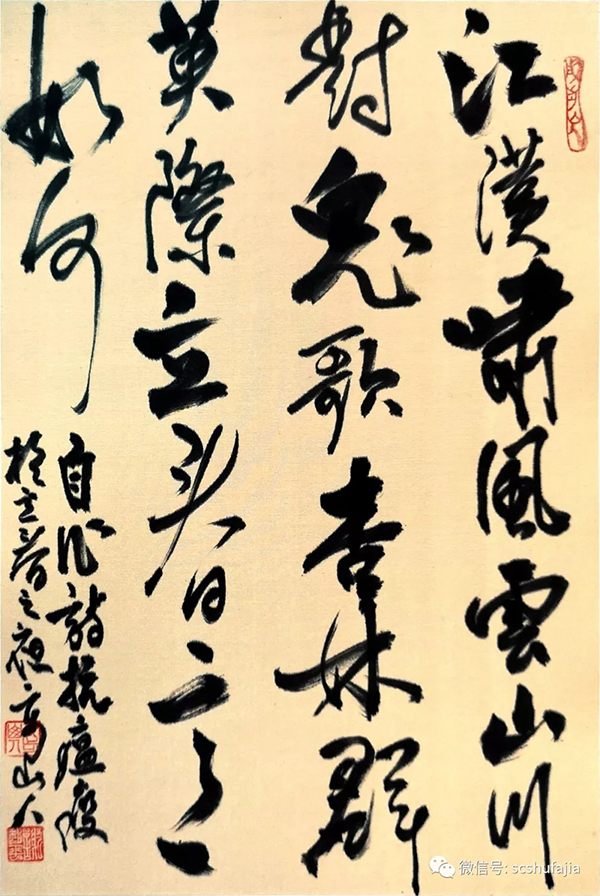 江漢嘯風雲山川
對鬼歌杏林群
英際立日
如何
自作詩抗瘟疫
於立春之夜高山人
微信号: scshufajia